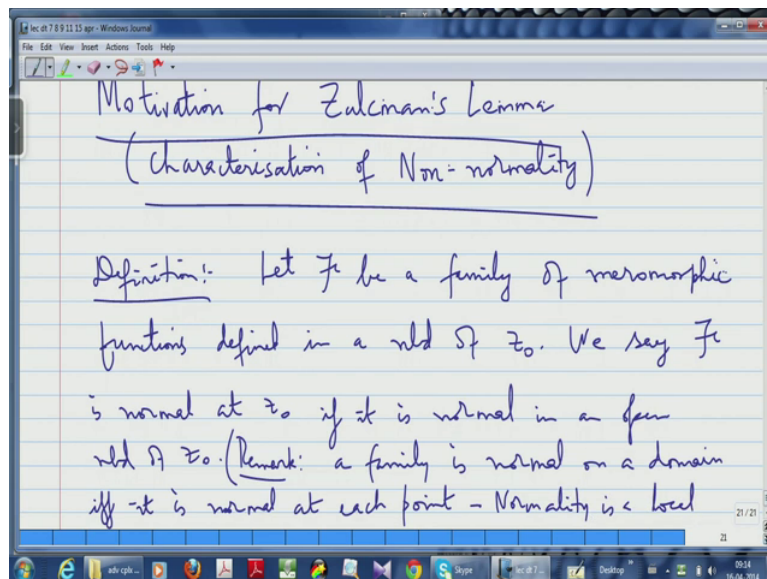 lec dt 7 8 9 11 15 apr - Windows Journal
File Edit View Insert Actions Tools Help
Motivation for Zalcman's Lemma
(Characterisation of Non-normality)
Definition:- Let F be a family of meromorphic
functions defined in a nbd of z₀. We say F
is normal at z₀ if it is normal in an open
nbd of z₀. (Remark: a family is normal on a domain
iff it is normal at each point - Normality is a local
21/21
21
adv cplx...
Skype
lec dt 7...
Desktop
09:14
16-04-2014